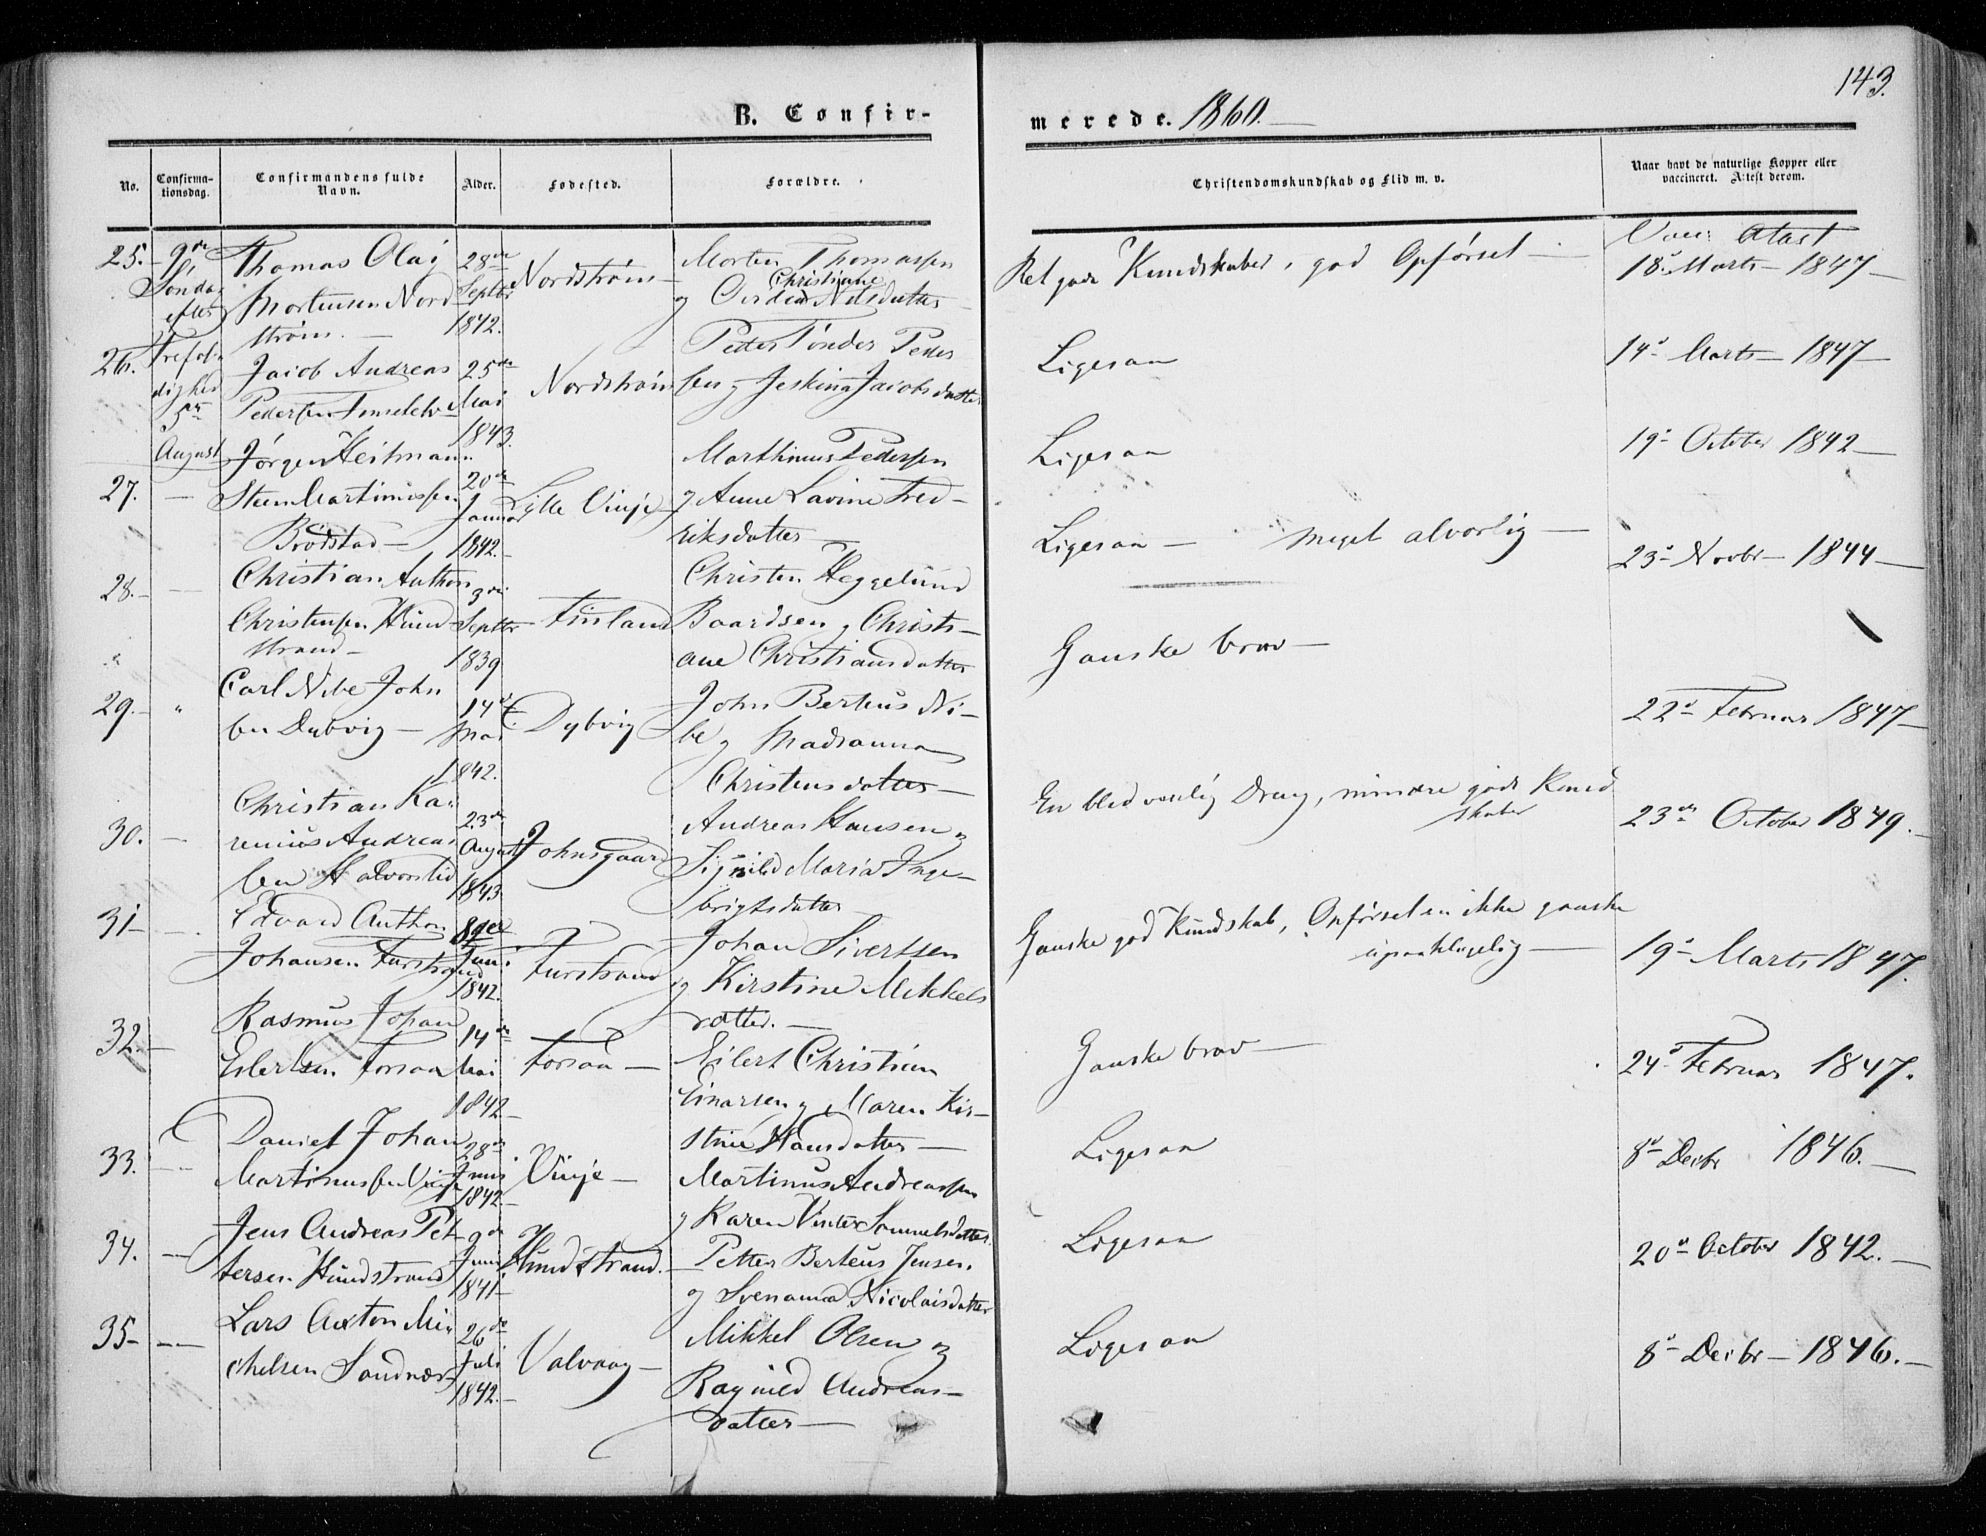 143.
B. Confir-
merede. 1860.
No.
Confirma-
tionsdag.
Confirmandens fulde
Navn.
Alder.
Fødested.
Forældre.
Christendomskundskab og Flid m. v.
Naar havt de naturlige Kopper eller
vaccineret. Attest derom.
25. 9de Søndag efter Trefoldighed 5te August
Thomas Olai
Mortensen Nord
strøm.
28de Septbr 1842.
Nordstrøm
Morten Thomassen
Christiane
og Nilsdatter
Ret gode Kundskaber, god Opførsel
Vacc Atest
18de Marts 1847
26.
Jacob Andreas
Pedersen
25de Mai 1843.
Nordstrøm
Peder Tønder Peder
sen og Jeskina Jacobsdatter
Ligesaa
14de Marts 1847
27.
Jørgen Heitmann
Steen Martinussen
Brødstad
20de Januar 1842.
Lille Vinje
Marthinus Pedersen
og Anne Lavine Fred-
riksdatter
Ligesaa
19de October 1842
28.
Christian Anthon
Christensen Hund
strand
3die Septbr 1839
Finland
Christen Heggelund
Baardsen og Christi-
ane Christiansdatter
Ligesaa - meget alvorlig
23de Novbr 1844
29. "
Carl Nibe John
sen Dybvig
14de Mai 1842.
Dybvig
John Berteus Ni-
be og Madsanna
Christensdatter
Ganske brav
22de Februar 1847
30.
Christian Ka-
renius Andrea
sen Halvorslid
23de August 1843.
Johnsgaard
Andreas Hansen og
Signild Maria Inge-
brigtsdatter
En bly venlig Dreng, mindre gode Kund
skaber
23de October 1849.
31
Edvard Anthon
Johansen Furstrand
8de Juni 1842.
Furstrand
Johan Sivertsen
og Kirstine Mikkels
datter.
Ganske god Kundskab, Opførselen ikke ganske
upaaklagelig
19de Marts 1847.
32.
Rasmus Johan
Eilertsen Forsaa
14de Mai 1842
Forsaa
Eilert Christian
Einarsen og Maren Kir-
stine Hansdatter
Ganske brav
24de Februar 1847.
33.
Daniel Johan
Martinussen Vinje
28de Juni 1842
Vinje
Martinus Andreassen
og Karen Vinter Samuelsdatter
Ligesaa
8de Decbr 1846.
34.
Jens Andreas Pet
tersen Hundstrand
9de Juni 1841
Hundstrand.
Petter Berteus Jensen
og Svenanna Nicolaisdatter
Ligesaa
20de October 1842.
35
Lars Anton Mi-
chelsen Sandnæs
26de Juli 1842.
Valvaag
Mikkel Olsen og
Ragnild Andreas-
datter
Ligesaa
8de Decbr 1846.